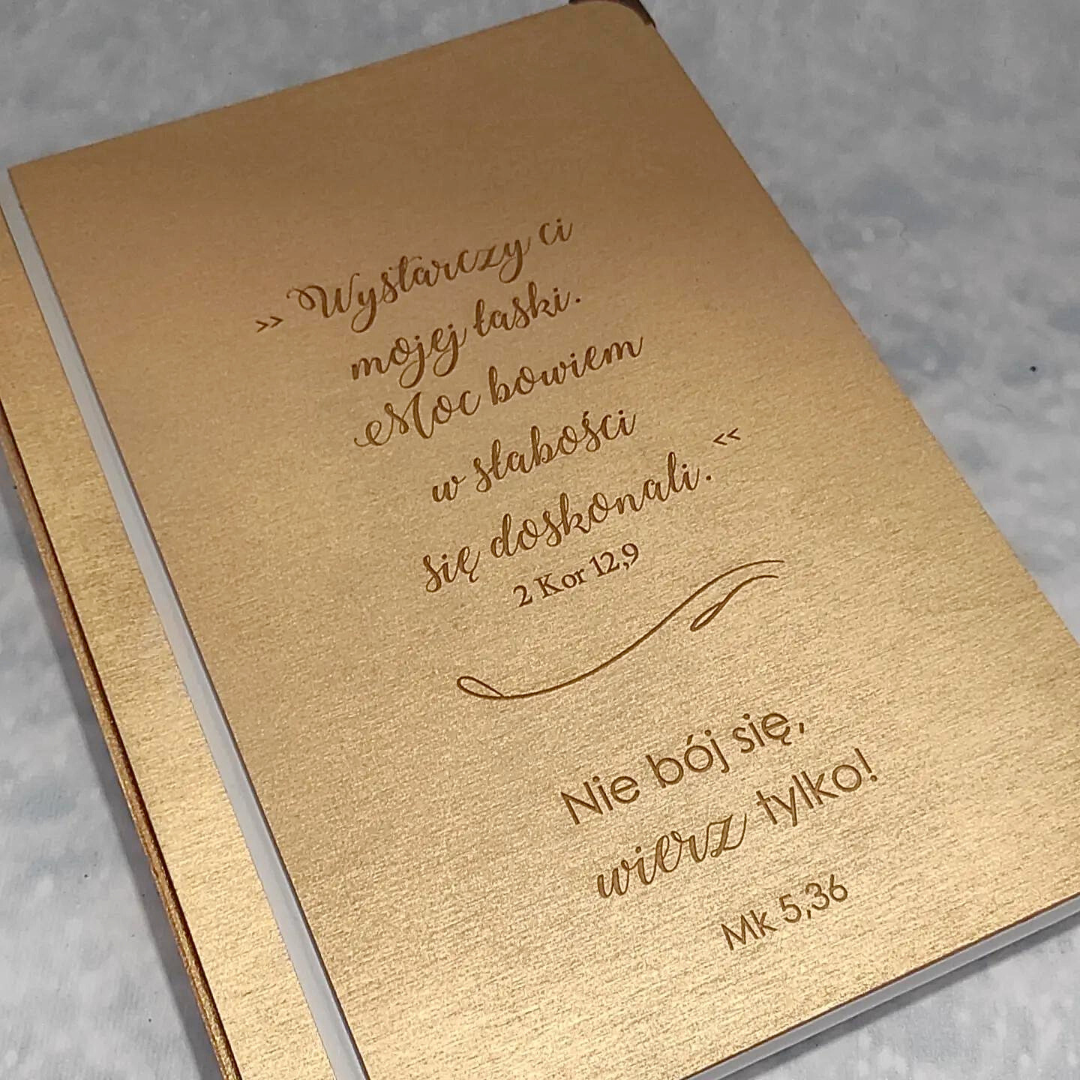 »Wystarczy ci
mojej łaski.
Moc bowiem
w słabości
się doskonali.«
2 Kor 12,9
Nie bój się,
wierz tylko!
Mk 5,36